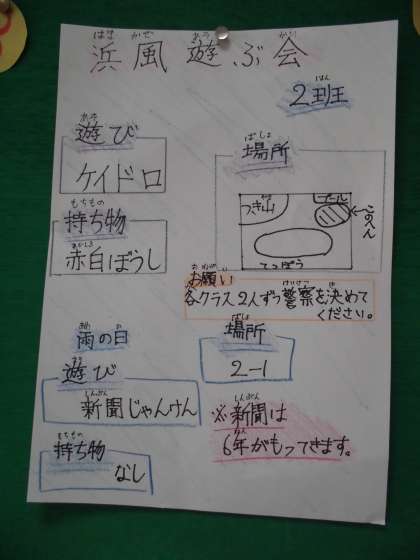 浜風遊ぶ会
はま かぜ あそ かい
2班
はん
遊び
あそ
ケイドロ
場所
ばしょ
つき山
プール
このへん
てつぼう
持ち物
もちもの
赤白ぼうし
あかしろ
お願い
おねがい
各クラス2人ずつ警察を決めて
けいさつ き
ください。
雨の日
あめ ひ
遊び
あそ
新聞じゃんけん
しんぶん
場所
ばしょ
2-1
持ち物
もちもの
なし
※新聞は
しんぶん
6年がもってきます。
ねん